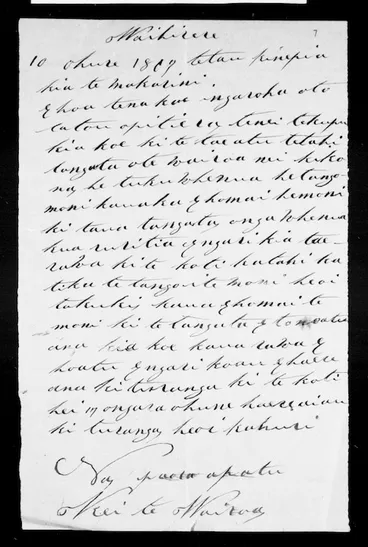 Waihirere
7
10 ohune 1867 tetau hinepia
kia te makarini.
E hoa tena koe ngaroha oto
tatou apiti era tenei tekupu
kia koe ki te tae atu tetahi
tangata ote wairoa nei kiko
na he tuku whenua he tango
moni kauaka E homai hemoni
ki taua tangata, onga whenua
kua ruritia Engari kia tae
rawa ki te koti katahi ka
tika te tangoite moni heoi
takuki kaua Ehomai te
moni ki te tangata E tono atu
ana kia koe kaua rawa E
hoatu Engari koau Ehaere
ana ki turanga ki te koti
hei 17 ongara ohune haere aiau
ki turanga heoi kahuri
Na paora apatu
Kei te Wairoa